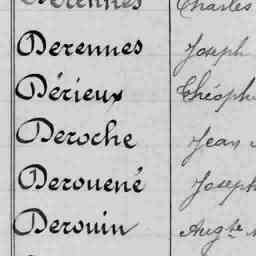 Derennes Charles
Derennes Joseph
Dérieux Théoph
Deroche Jean
Derouené Joseph
Derouin Augte